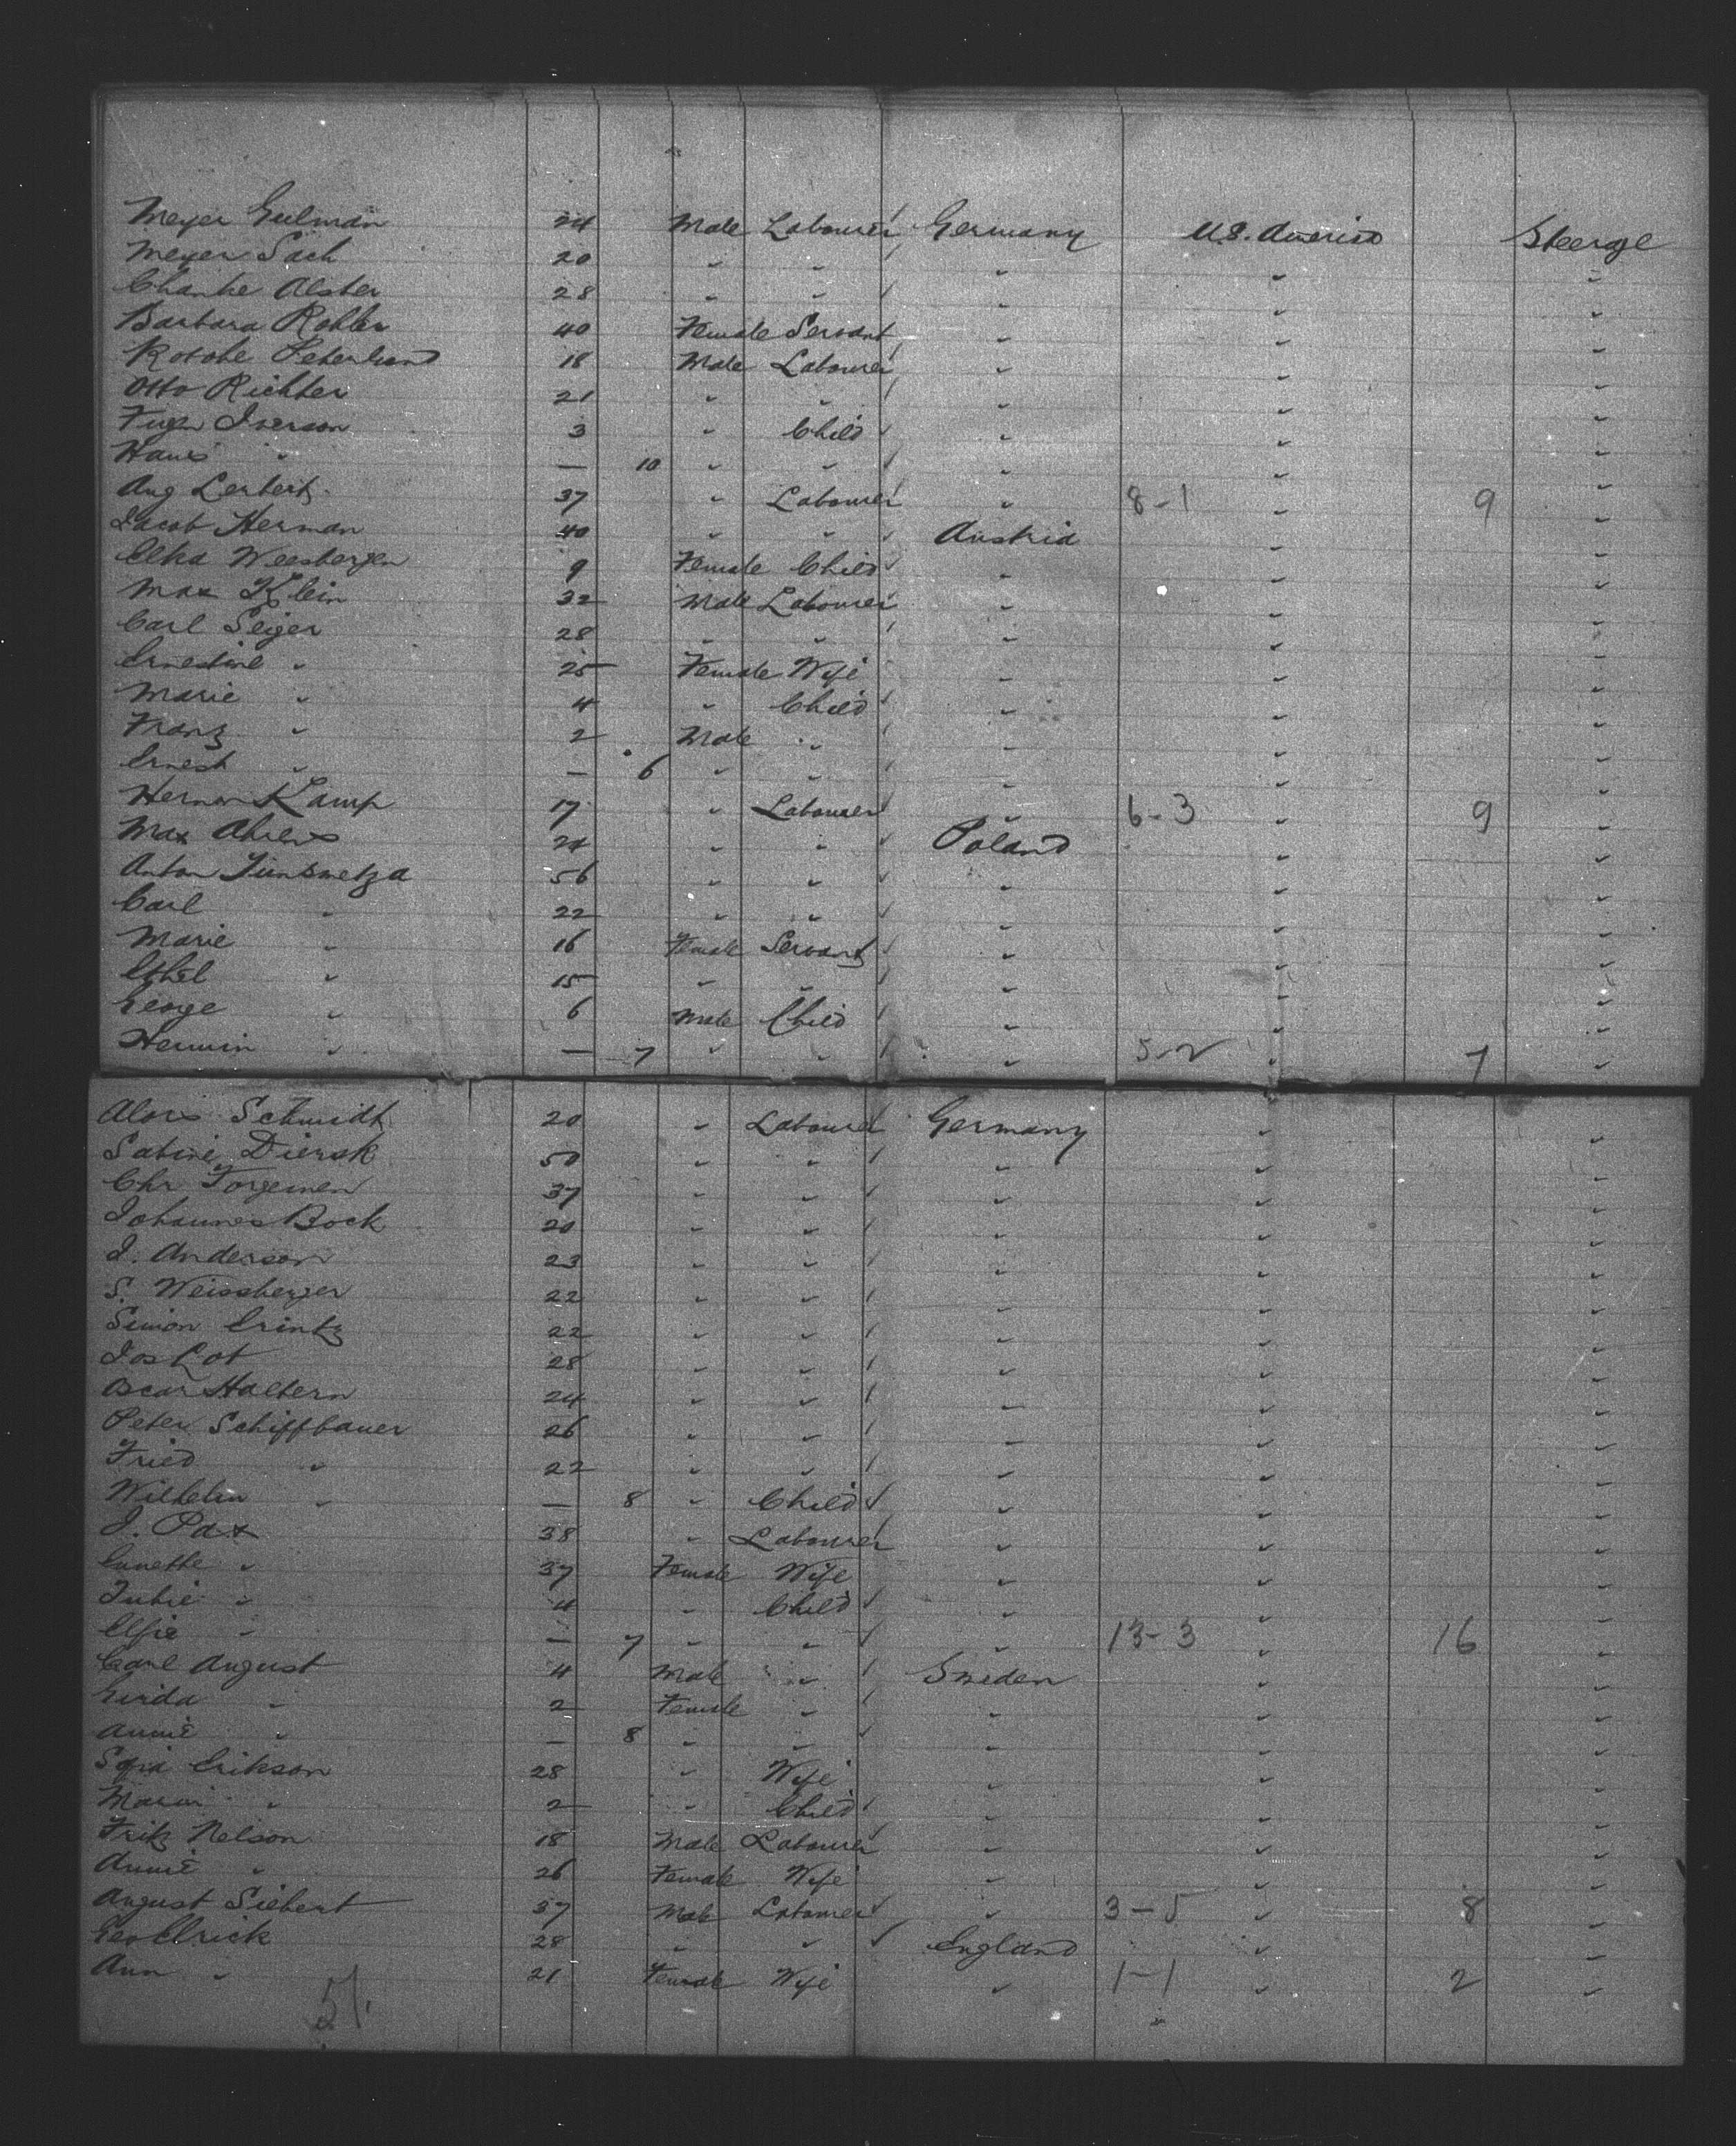 Meyer Gulman 24 Male Labourer Germany U.S. America Steerage
Meyer Sach 20 " " " " "
Chanke Alster 28 " " " " "
Barbara Kohler 40 Female Servant " " "
18 Male Labourer " " "
Otto Richter 21 " " " " "
Iverson 3 " Child " " "
Hans " — 10 " " " " "
Aug 37 " Labourer " 8-1 " 9 "
Jacob Herman 40 " " Austria " "
Elka Weesbergen 9 Female Child " " "
Max Klein 32 Male Labourer " " "
Carl Seiger 28 " " " " "
Ernestine " 25 Female Wife " " "
Marie " 4 " Child " " "
Franz " 2 Male " " " "
Ernest " — 6 " " " " "
Herman Kamp 17 " Labourer " 6-3 " 9 "
Max Ahlers 24 " " Poland " "
Anton 56 " " " " "
Carl " 22 " " " " "
Marie " 16 Female Servant " " "
Ethel " 15 " " " " "
George " 6 Male Child " " "
Hermin " — 7 " " " 5-2 " 7 "
Alois Schmidt 20 " Labourer Germany " "
Sabine Diersk 50 " " " " "
Chr Torgemen 37 " " " " "
Johannes Bock 20 " " " " "
J. Anderson 23 " " " " "
S. Weissberger 22 " " " " "
Simon Crintz 22 " " " " "
Jos Lot 28 " " " " "
Oscar Haltern 24 " " " " "
Peter Schiffbauer 26 " " " " "
Fried " 22 " " " " "
Wilhelm " — 8 " Child " " "
J. Pax 38 " Labourer " " "
" 37 Female Wife " " "
" 4 " Child " " "
Elfie " — 7 " " " 13-3 " 16 "
Carl August 4 Male " Sweden " "
Gerda " 2 Female " " " "
Annie " — 8 " " " " "
Sofia Erikson 28 " Wife " " "
" 2 " Child " " "
Fritz Nelson 18 Male Labourer " " "
Annie " 26 Female Wife " " "
August Siebert 37 Male Labourer " 3-5 " 8 "
Geo Elrick 28 " " England " "
Ann " 21 Female Wife " 1-1 " 2 "
51